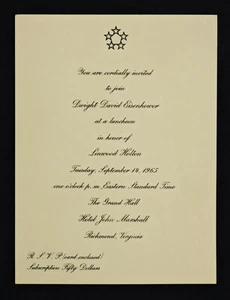 You are cordially invited
to join
Dwight David Eisenhower
at a luncheon
in honor of
Linwood Holton
Tuesday, September 14, 1965
one o'clock p. m. Eastern Standard Time
The Grand Hall
Hotel John Marshall
Richmond, Virginia
R. S. V. P. (card enclosed)
Subscription Fifty Dollars